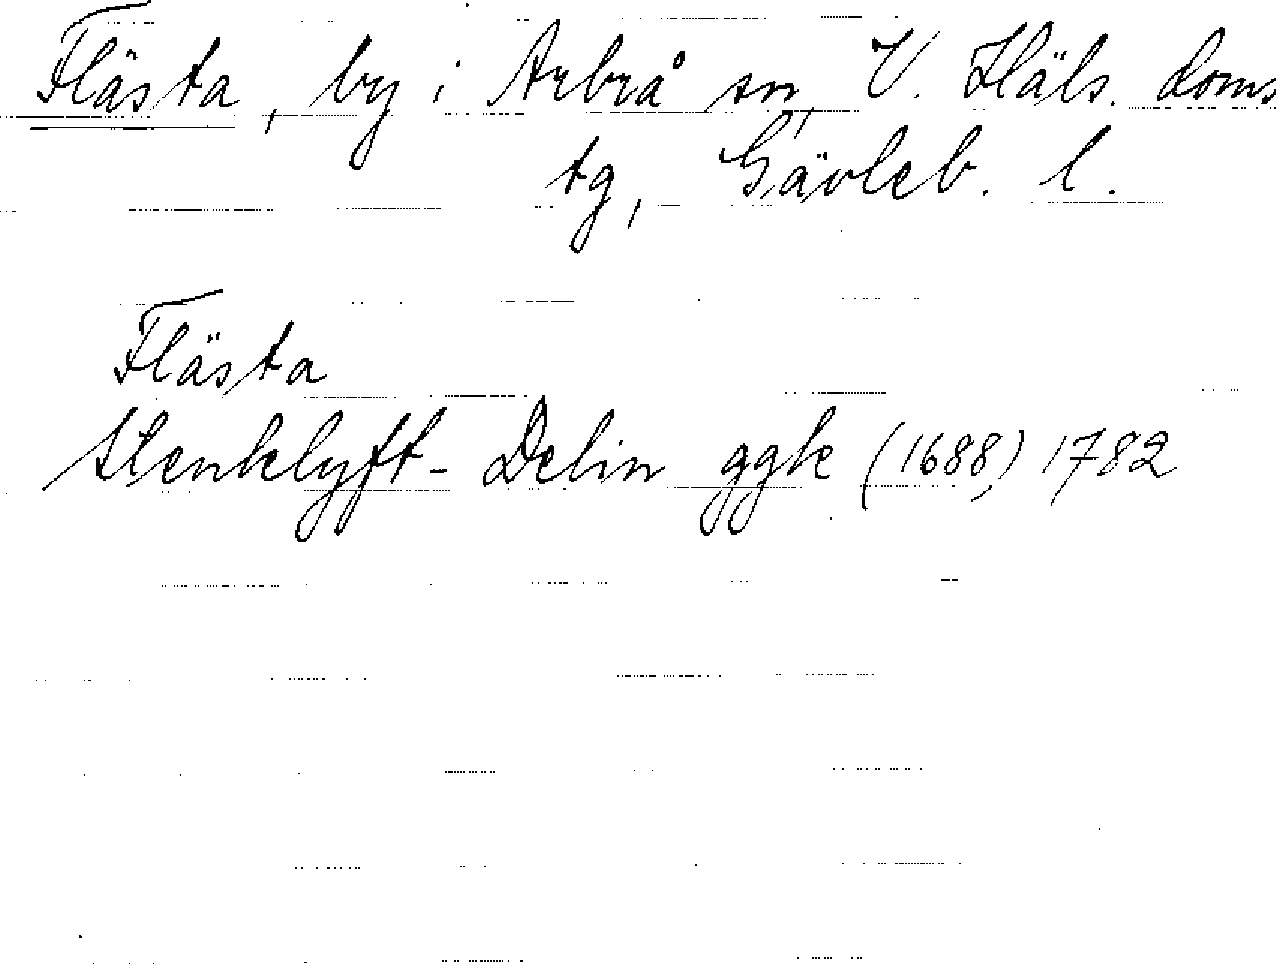 Flästa, by i Arbrå sn, V. Häls. doms
tg, Gävleb. l.
Flästa
Stenklyft-Delin ggk (1688,) 1782